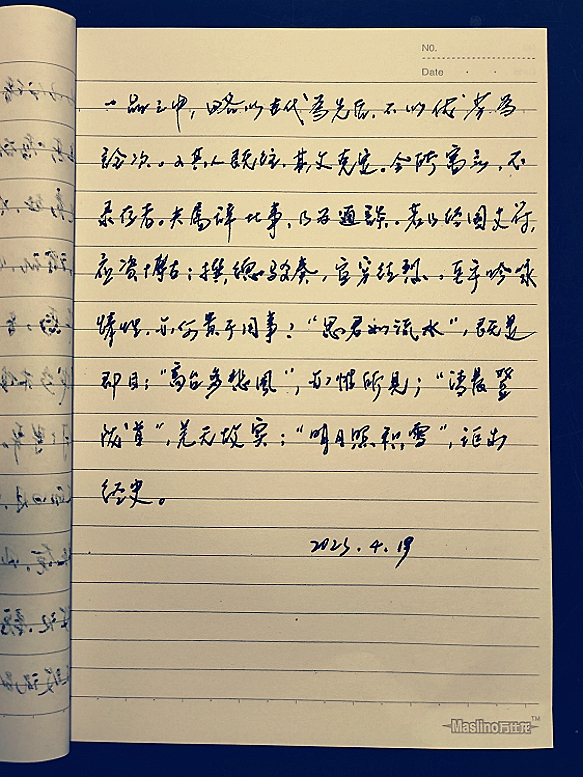 NO.
Date
一品之中，略以世代为先后，不以优劣为
诠次。又其人既往，其文克定。今所寓言，不
录存者。夫属辞比事，乃为通谈。若乃经国文符，
应资博古；撰德驳奏，宜穷往烈。至乎吟咏
情性，亦何贵于用事？“思君如流水”，既是
即目；“高台多悲风”，亦惟所见；“清晨登
陇首”，羌无故实；“明月照积雪”，讵出
经史。
2025.4.19
Maslino